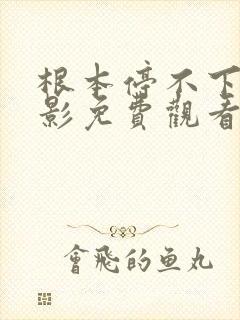 根本停不下
影免費觀看
會飛的鱼丸